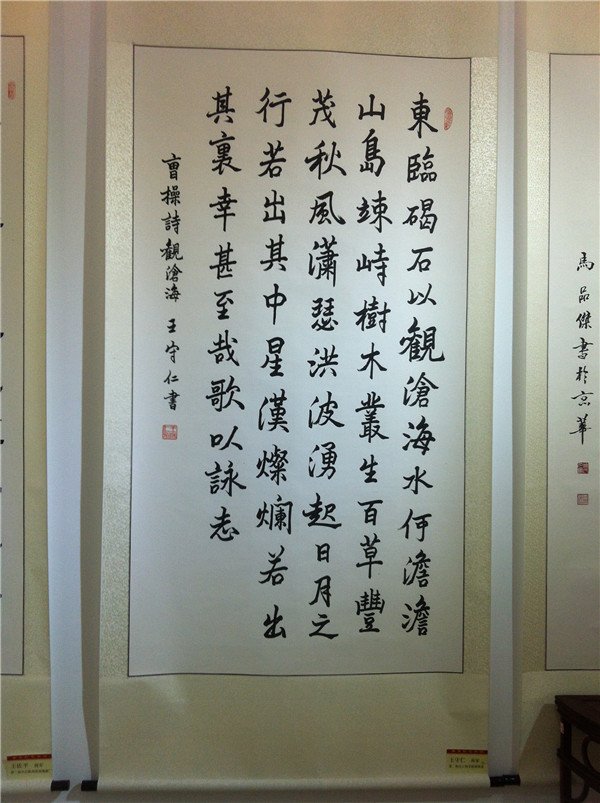 馬品傑書於京華
東臨碣石以觀滄海水何澹澹
山島竦峙樹木叢生百草豐
茂秋風瀟瑟洪波湧起日月之
行若出其中星漢燦爛若出
其裏幸甚至哉歌以詠志
曹操詩觀滄海 王守仁書
王守仁